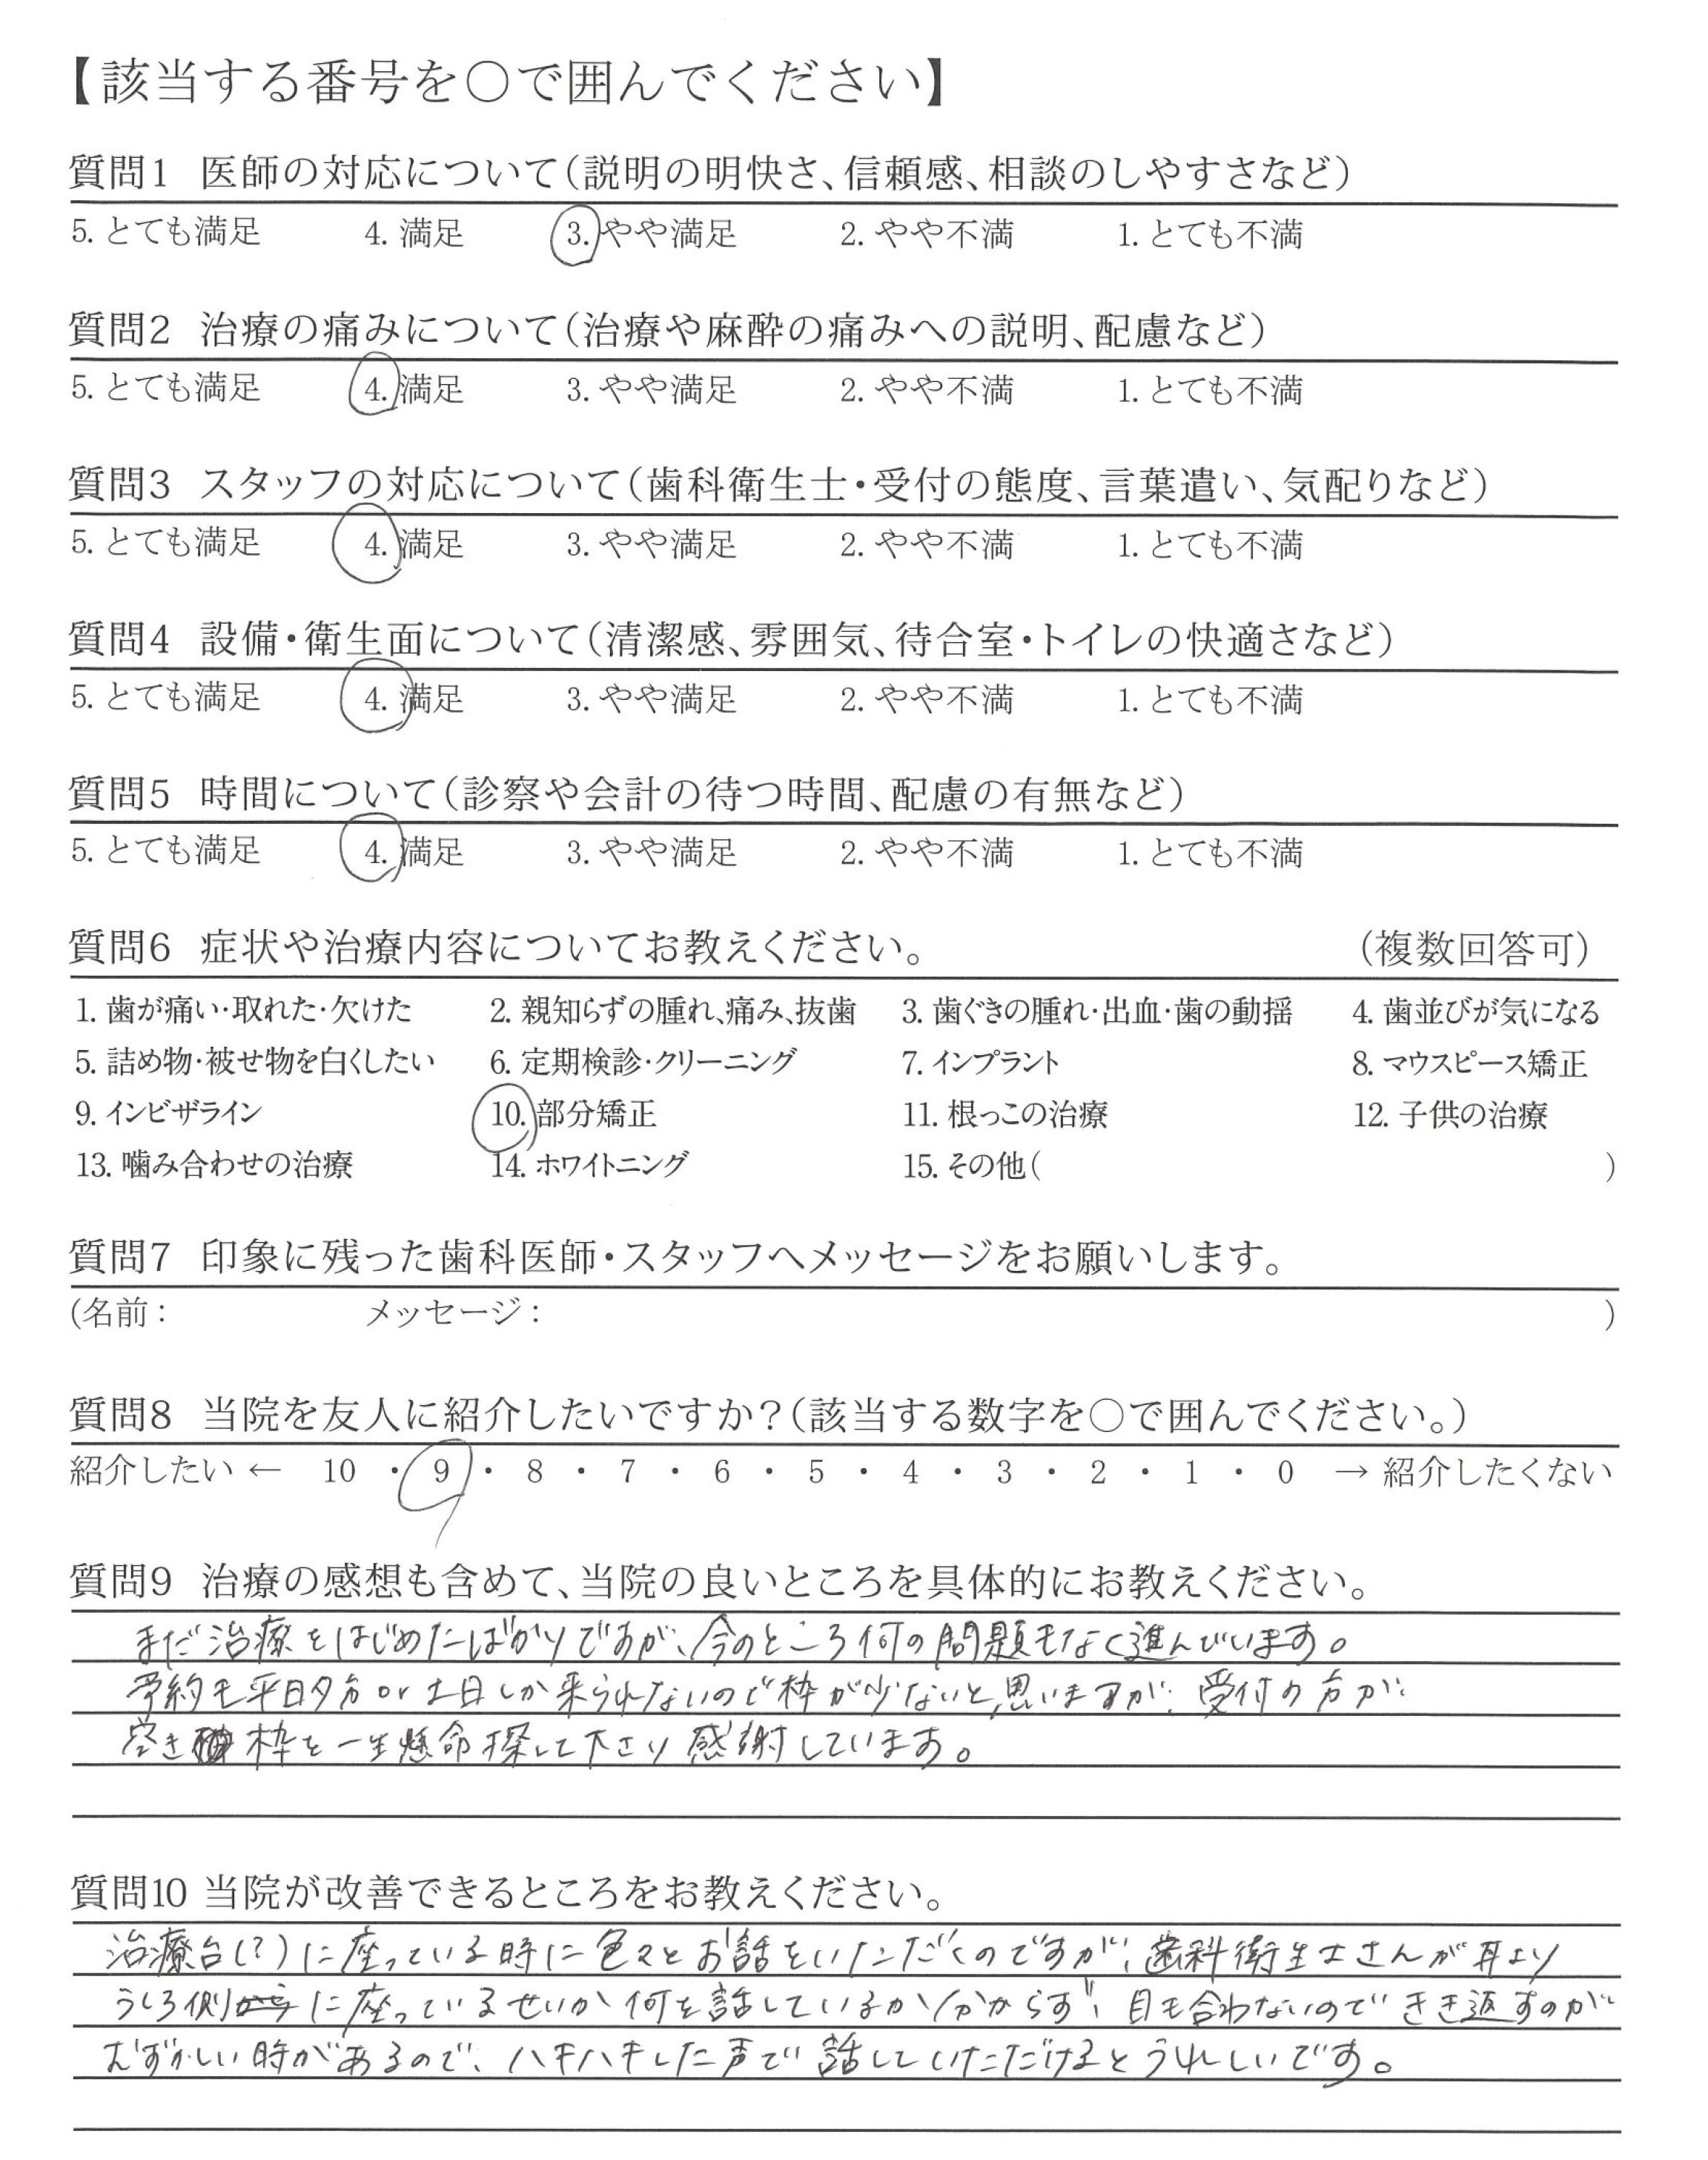 【該当する番号を〇で囲んでください】
質問1 医師の対応について(説明の明快さ、信頼感、相談のしやすさなど)
5. とても満足 4. 満足 3. やや満足 2. やや不満 1. とても不満
質問2 治療の痛みについて(治療や麻酔の痛みへの説明、配慮など)
5. とても満足 4. 満足 3. やや満足 2. やや不満 1. とても不満
質問3 スタッフの対応について(歯科衛生士・受付の態度、言葉遣い、気配りなど)
5. とても満足 4. 満足 3. やや満足 2. やや不満 1. とても不満
質問4 設備・衛生面について(清潔感、雰囲気、待合室・トイレの快適さなど)
5. とても満足 4. 満足 3. やや満足 2. やや不満 1. とても不満
質問5 時間について(診察や会計の待つ時間、配慮の有無など)
5. とても満足 4. 満足 3. やや満足 2. やや不満 1. とても不満
質問6 症状や治療内容についてお教えください。 (複数回答可)
1. 歯が痛い・取れた・欠けた 2. 親知らずの腫れ、痛み、抜歯 3. 歯ぐきの腫れ・出血・歯の動揺 4. 歯並びが気になる
5. 詰め物・被せ物を白くしたい 6. 定期検診・クリーニング 7. インプラント 8. マウスピース矯正
9. インビザライン 10. 部分矯正 11. 根っこの治療 12. 子供の治療
13. 噛み合わせの治療 14. ホワイトニング 15. その他( )
質問7 印象に残った歯科医師・スタッフへメッセージをお願いします。
(名前: メッセージ: )
質問8 当院を友人に紹介したいですか?(該当する数字を〇で囲んでください。)
紹介したい ← 10 ・ 9 ・ 8 ・ 7 ・ 6 ・ 5 ・ 4 ・ 3 ・ 2 ・ 1 ・ 0 → 紹介したくない
質問9 治療の感想も含めて、当院の良いところを具体的にお教えください。
まだ治療をはじめたばかりですが、今のところ何の問題もなく進んでいます。
予約も平日夕方or土日しか来られないので枠が少ないと思いますが、受付の方が
空き枠を一生懸命探して下さり感謝しています。
質問10 当院が改善できるところをお教えください。
治療台(?)に座っている時に色々とお話をいただくのですが、歯科衛生士さんが耳より
うしろ側に座っているせいか何を話しているか分からず、目も合わないのできき返すのが
むずかしい時があるので、ハキハキした声で話していただけるとうれしいです。